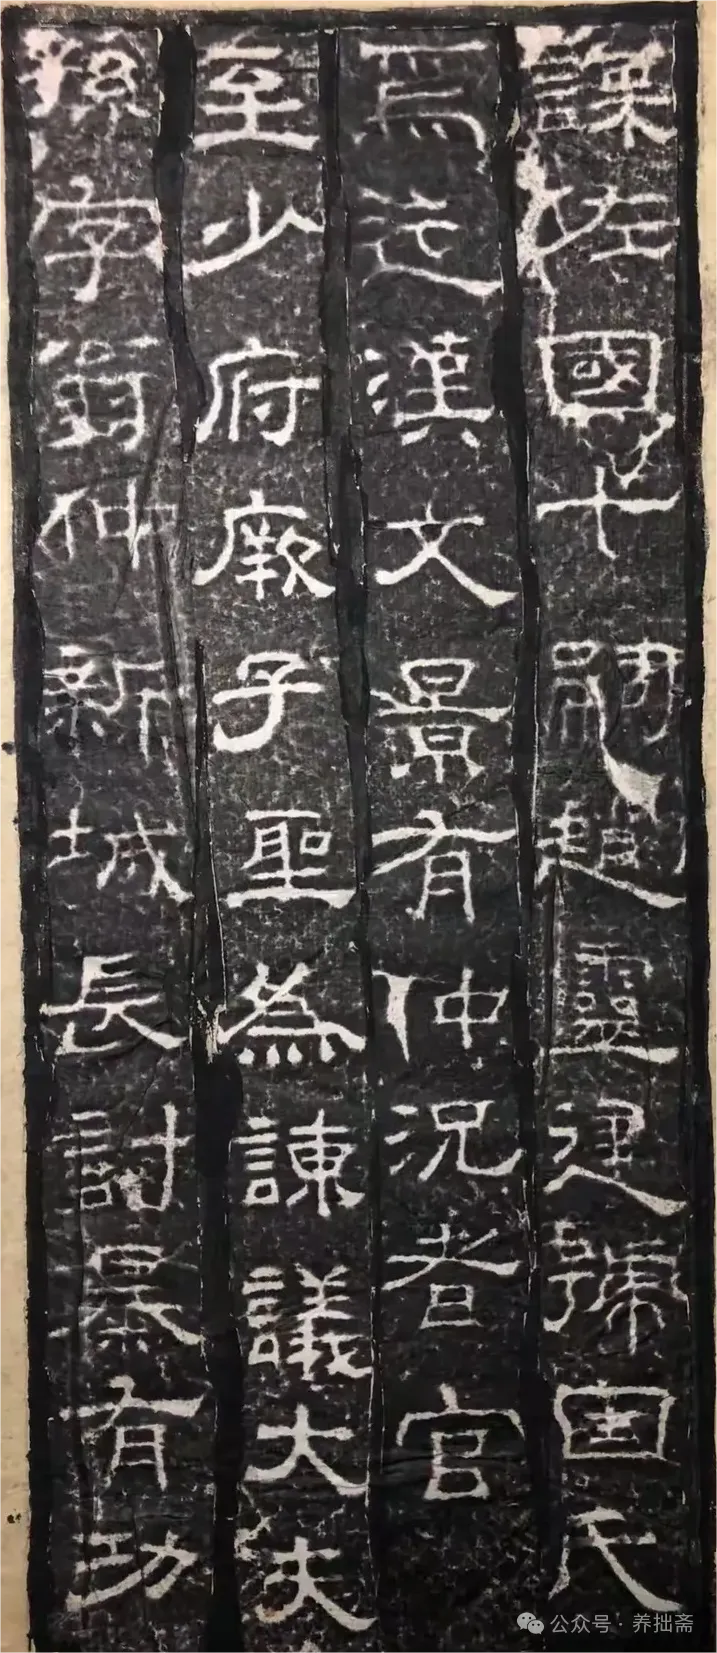 謀佐國十嗣趙靈建號因氏
焉迄漢文景有仲況者官
至少府厥子聖為諫議大夫
孫字翁仲新城長討暴有功
公众号·养拙斋